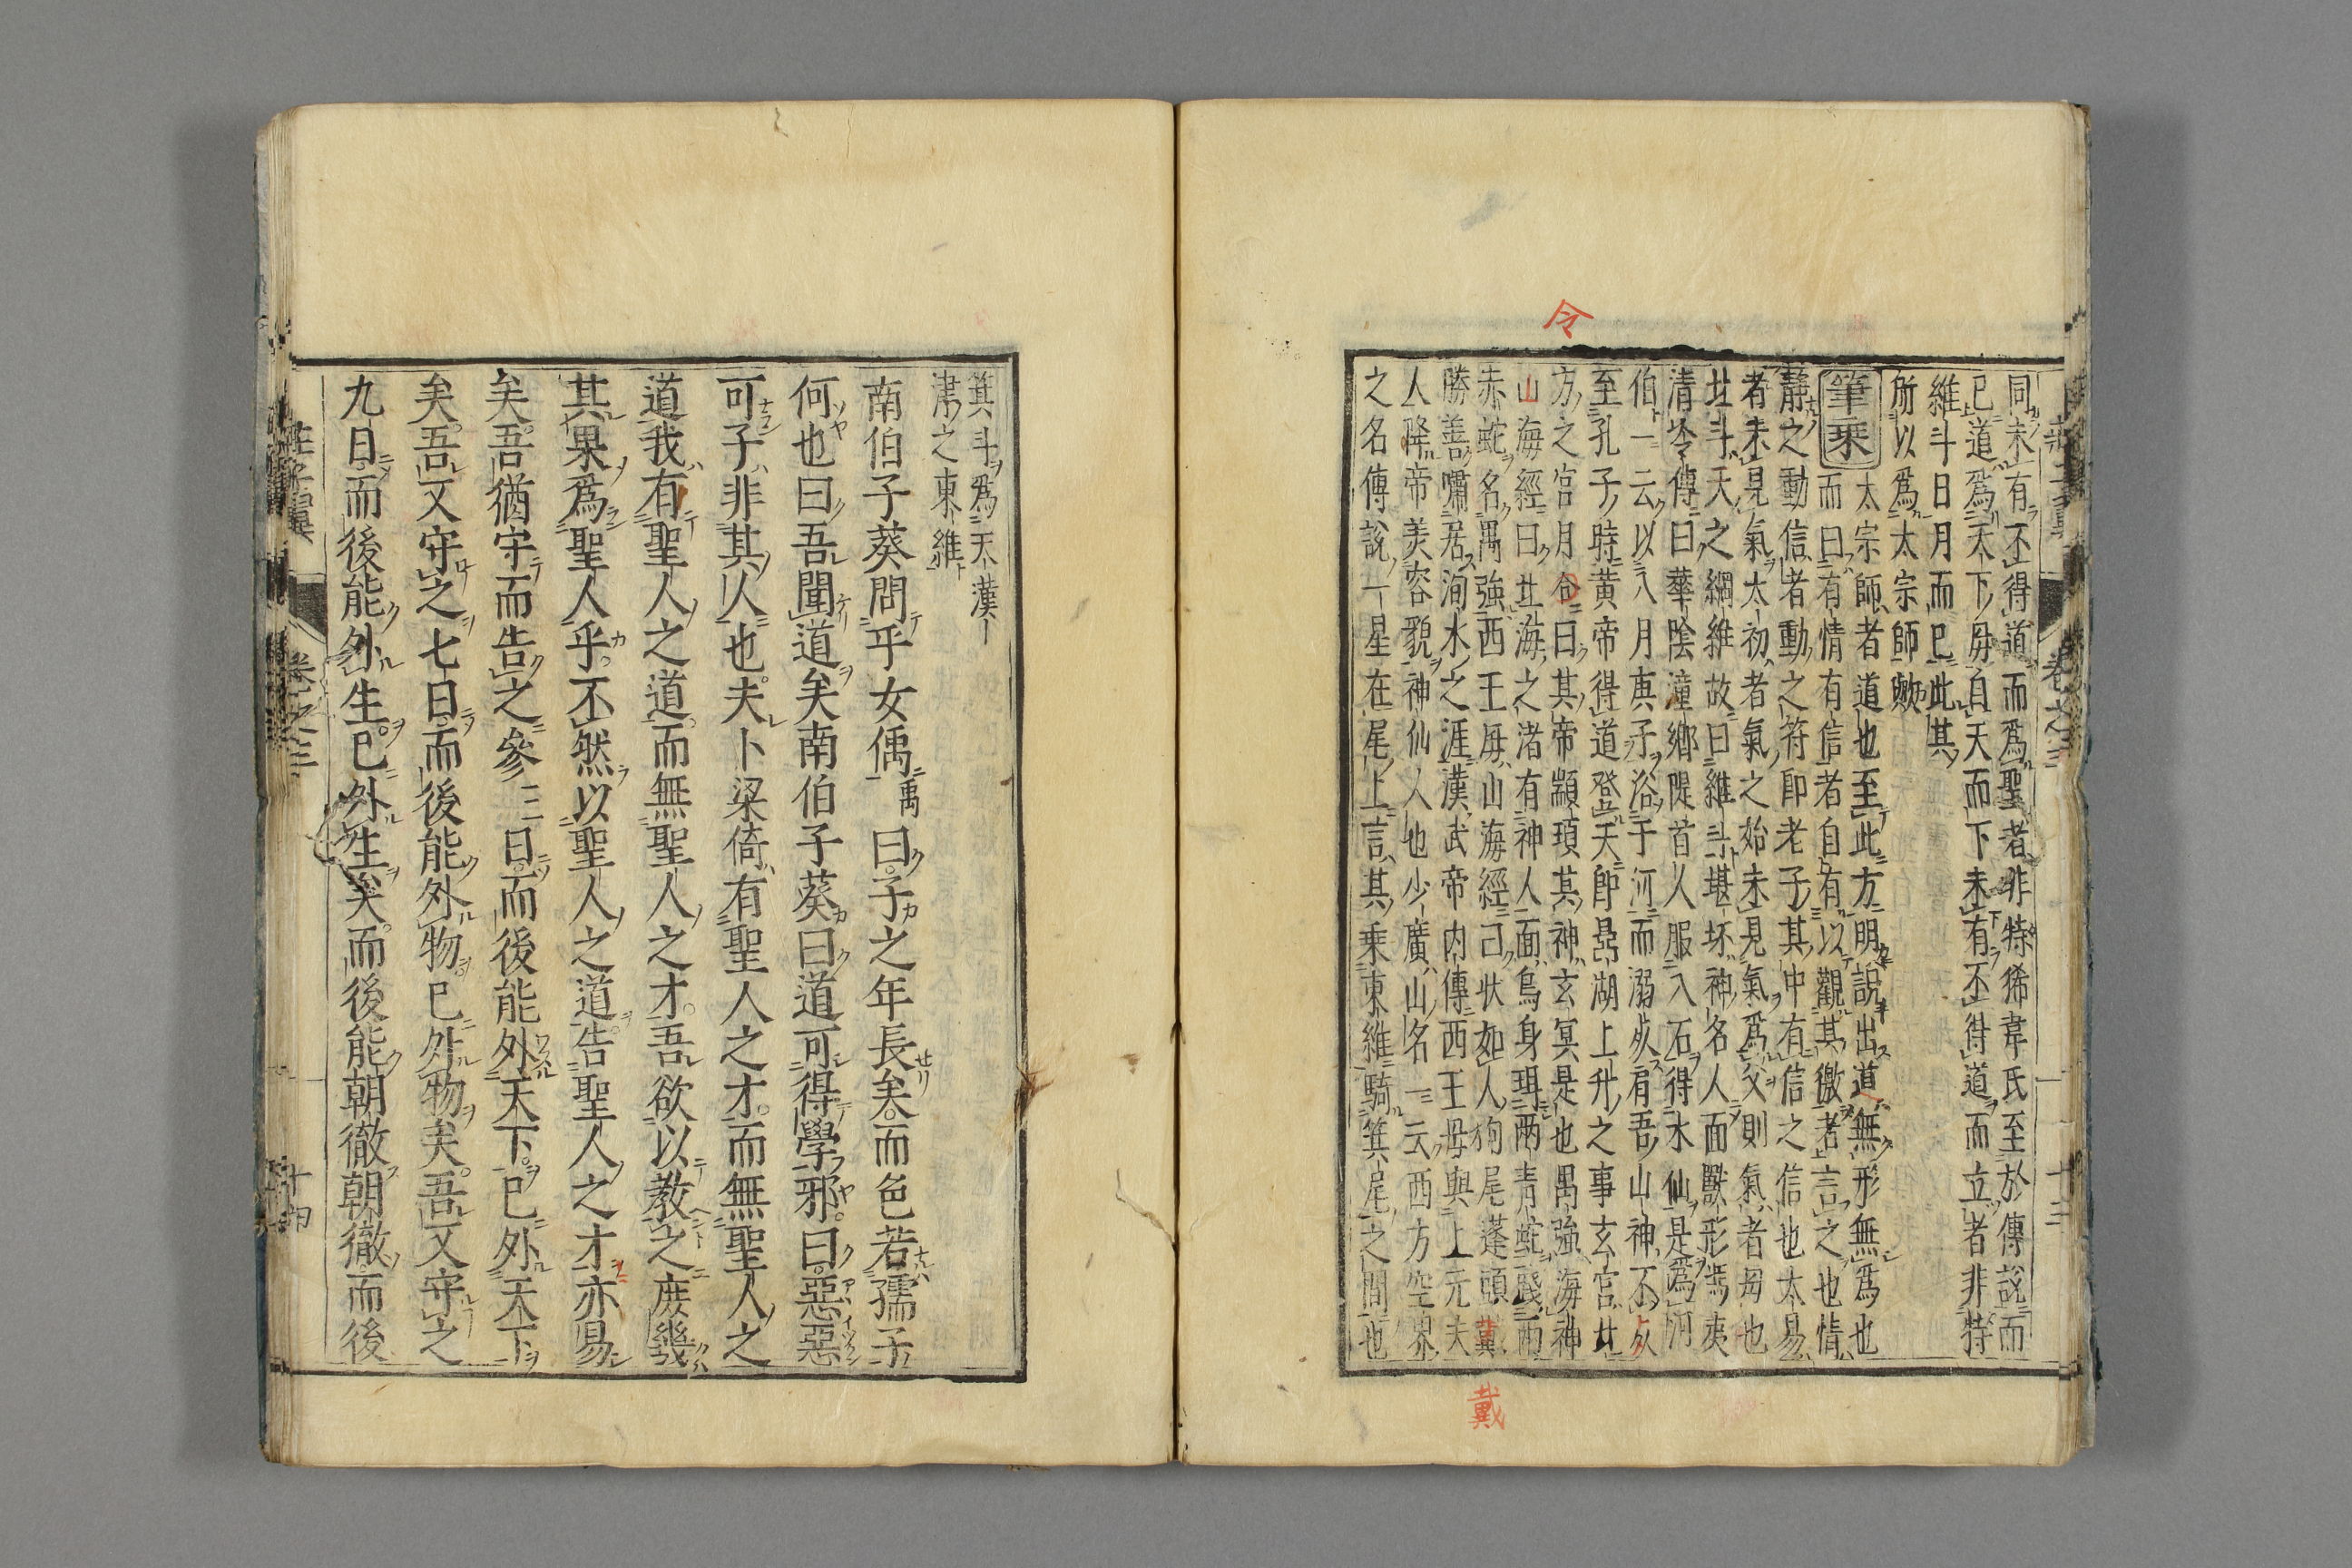 莊子翼 卷之三 十三
同未有不得道而爲聖者非特狶韋氏至於傳說而
已道爲天下毋自天而下未有不待道而立者非特
維斗日月而已此其
所以爲太宗師歟
筆乘
太宗師者道也至此方明說出道無形無爲也
而曰有情有信者自有以觀其徼者言之也情
靜之動信者動之符卽老子其中有信之信也太易
者未見氣太初者氣之始未見氣爲父則氣者母也
北斗天之綱維故曰維斗堪坏神名人面獸形馮夷
清冷傳曰華陰潼鄉隄首人服八石得水仙是爲河
伯一云以八月庚子浴于河而溺死肩吾山神不死
至孔子時黃帝得道登天卽鼎湖上升之事玄宮北
方之宮月令曰其帝顓頊其神玄冥是也禺強海神
山海經曰北海之渚有神人面鳥身珥兩青蛇踐兩
赤蛇名禺強西王毋山海經云狀如人狗尾蓬頭戴
勝善嘯居洵水之涯漢武帝内傳西王毋與上元夫
人降帝美容貌神仙人也少廣山名一云西方空界
之名傳說一星在尾上言其乘東維騎箕尾之間也
令
戴
箕斗爲天漢
津之東維
南伯子葵問乎女偊禹曰子之年長矣而色若孺子
何也曰吾聞道矣南伯子葵曰道可得學邪曰惡惡
可子非其人也夫卜梁倚有聖人之才而無聖人之
道我有聖人之道而無聖人之才吾欲以教之庶幾
其果爲聖人乎不然以聖人之道告聖人之才亦易
矣吾猶守而告之參三日而後能外天下已外天下
矣吾又守之七日而後能外物已外物矣吾又守之
九日而後能外生已外生矣而後能朝徹朝徹而後
莊子翼 卷之三 十四